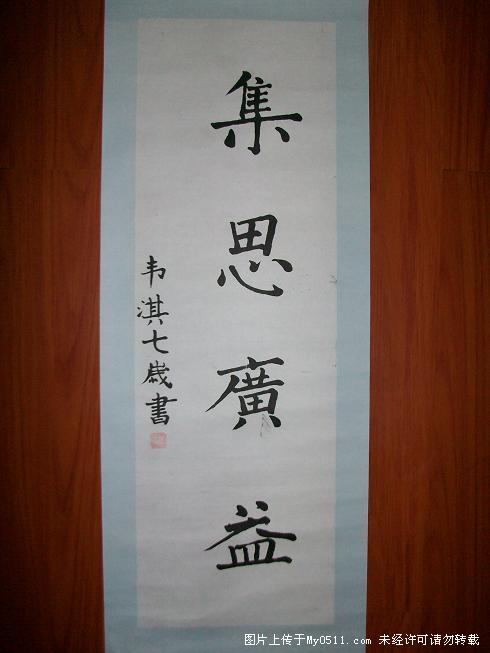 集思廣益
韦淇七歲書
图片上传于My0511.com 未经许可请勿转载